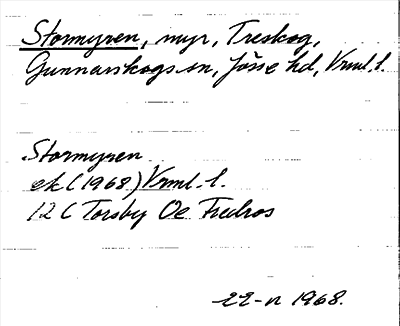 Stormyren, myr, Treskog,
Gunnarskogs sn, Jösse hd, Vrml. l.
Stormyren
ek (1968) Vrml. l.
12 C Torsby Öe Fredros
1968.